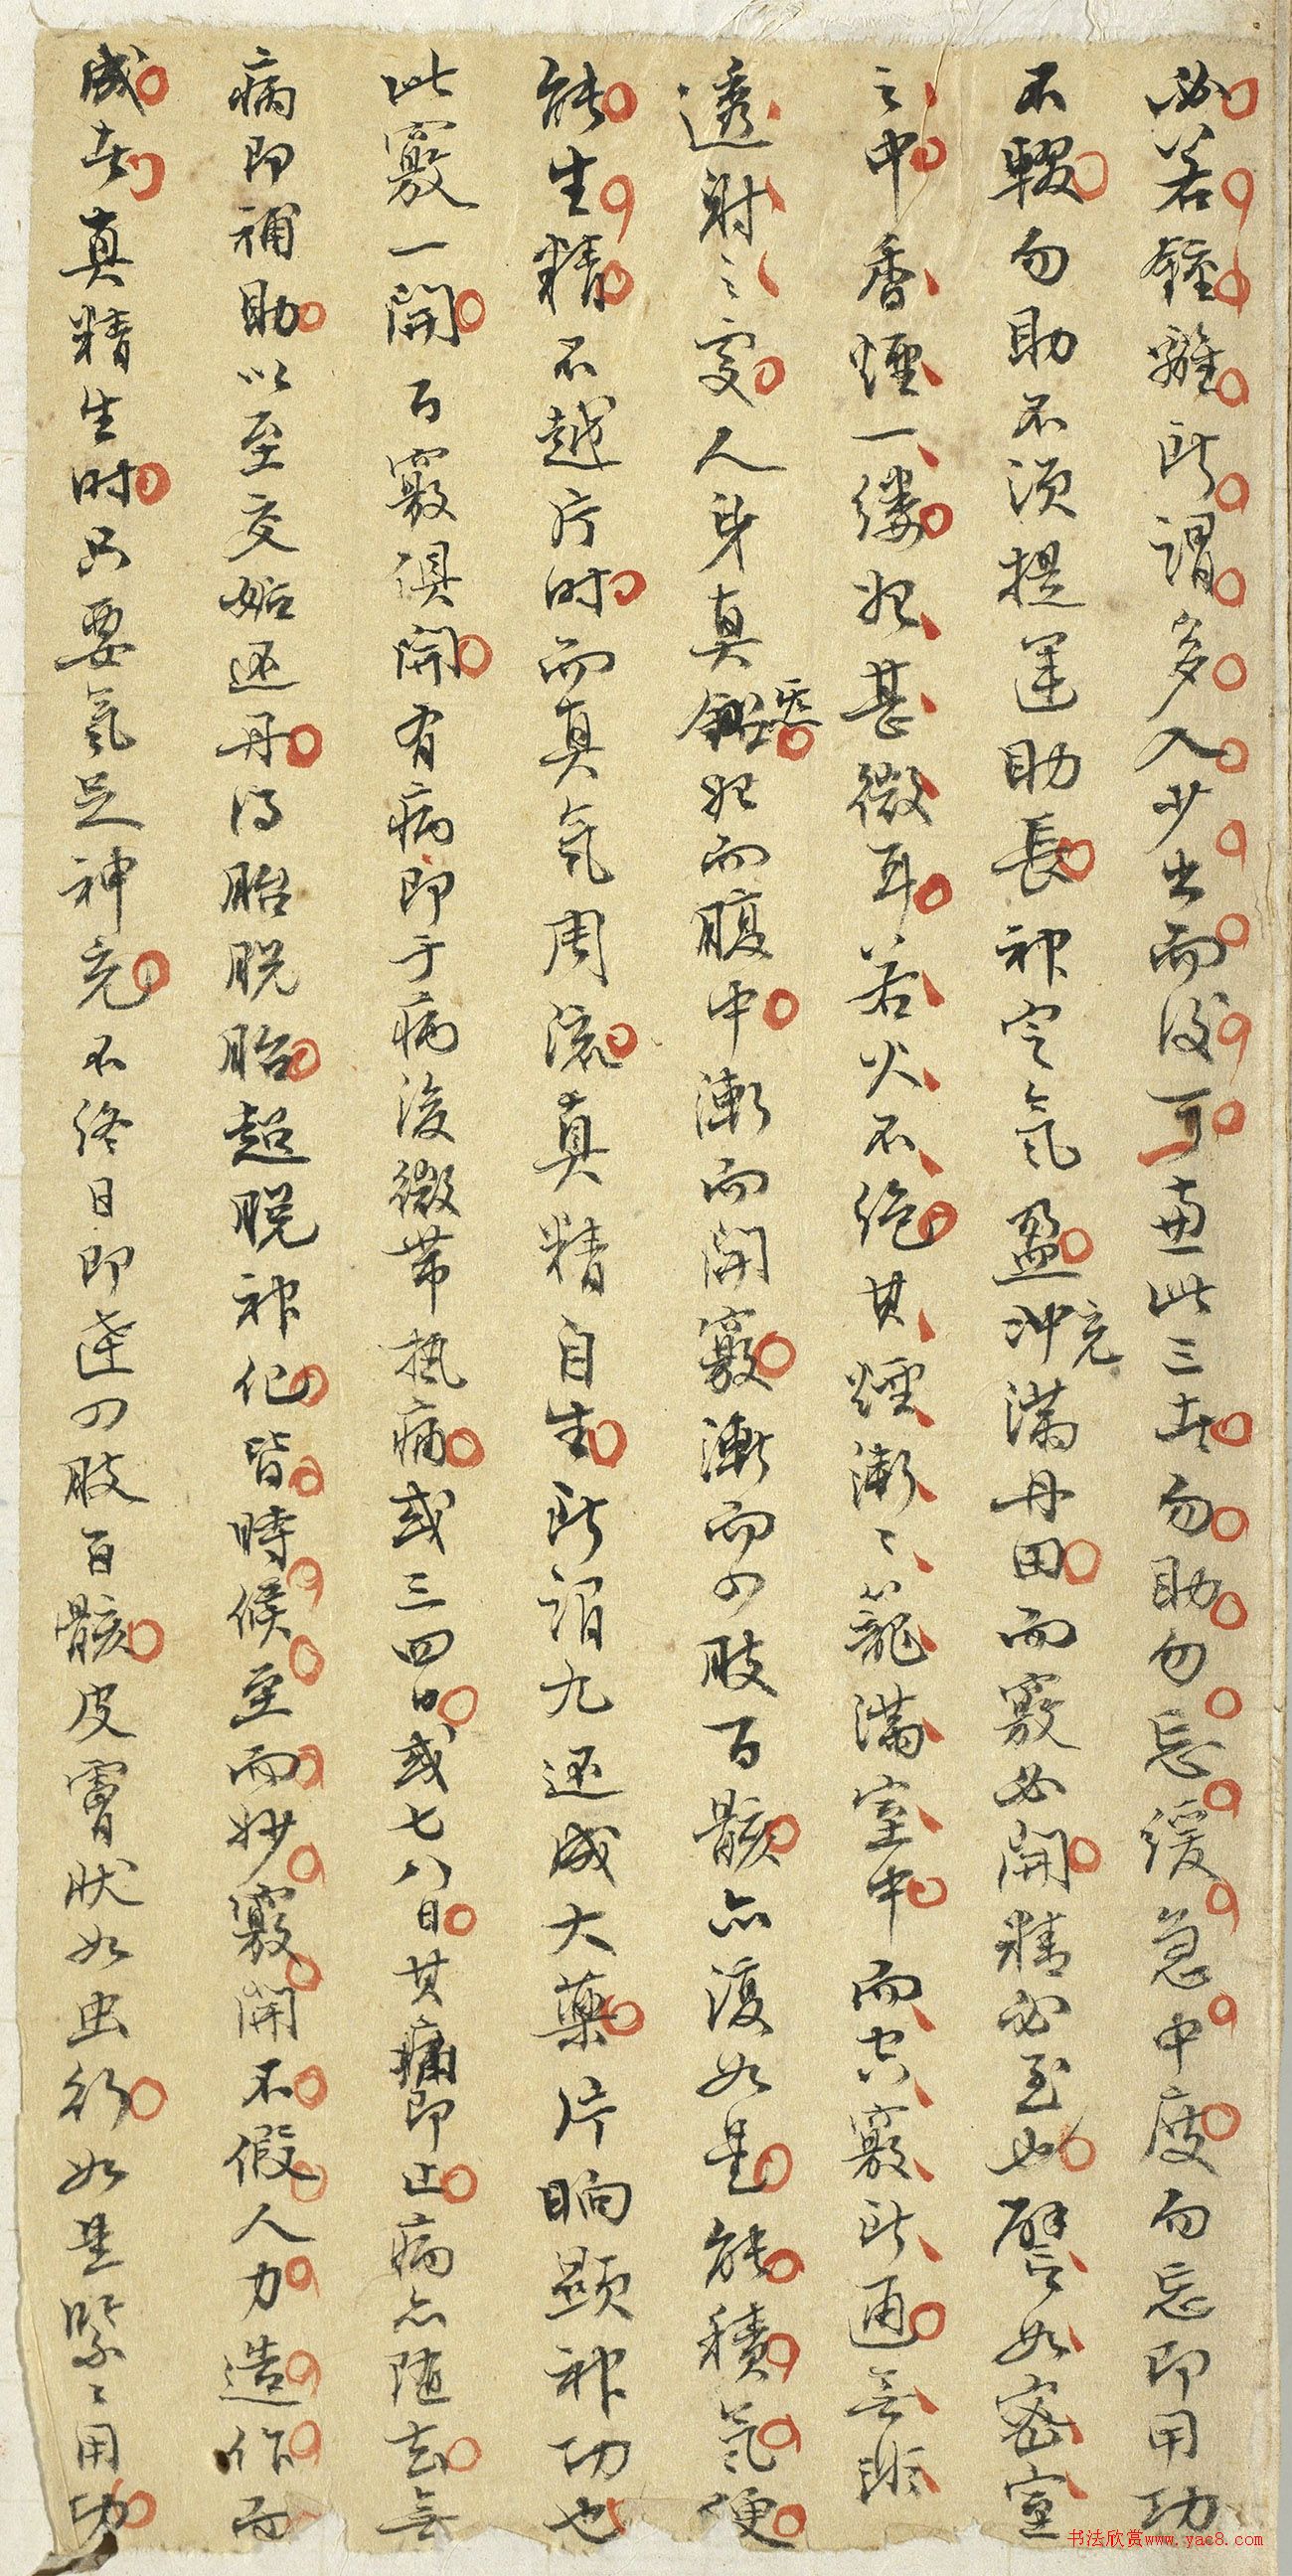 必若鍾離所謂多入少出而後可。惠此三者勿助勿忘緩急中度勿忘即用功
不輟勿助不須提運助長神定氣盈冲充滿丹田而竅必開精必至也譬如密室
之中香煙一縷起甚微耳若火不絕其煙漸々籠滿室中而穴竅所通無非
透射之處人身真鉛炁起而腹中漸而開竅漸而四肢百骸亦復如是能積氣便
能生精不越片時而真氣周流真精自生所謂九還成大藥片晌顯神功也
此竅一開百竅俱開有病即于病後微帶熱痛或三四日或七八日其痛即止病亦隨去無
病即補助以至交姤还丹得胎脫胎超脫神化皆時候至而妙竅開不假人力造作而
成者真精生时只要氣足神充不終日即達四肢百骸皮膚狀如虫行如是緊々用功
书法欣赏www.yac8.com